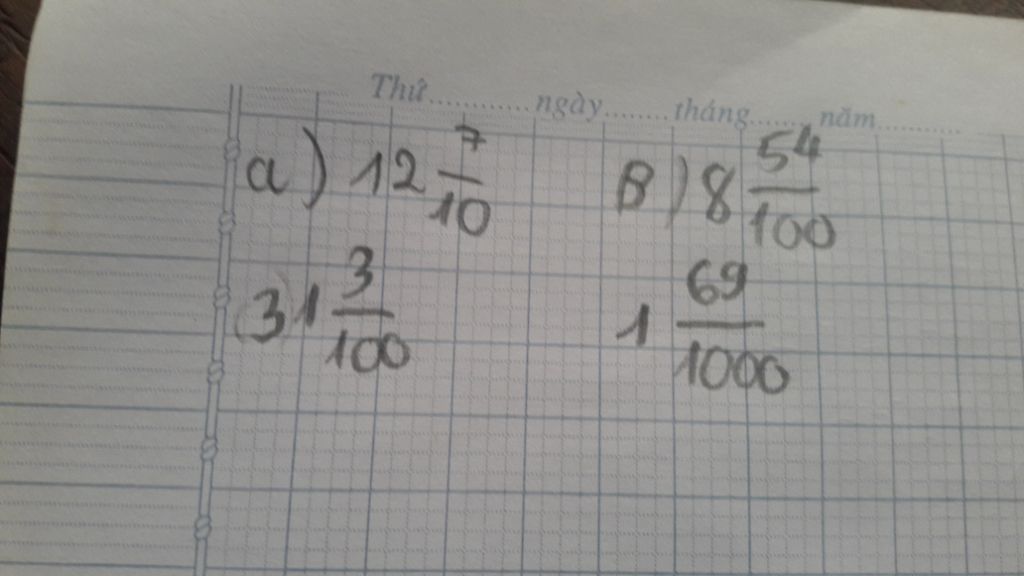 Thứ............ngày.......tháng.......năm...........
a) 12 7/10 B) 8 54/100
31 3/100 1 69/1000